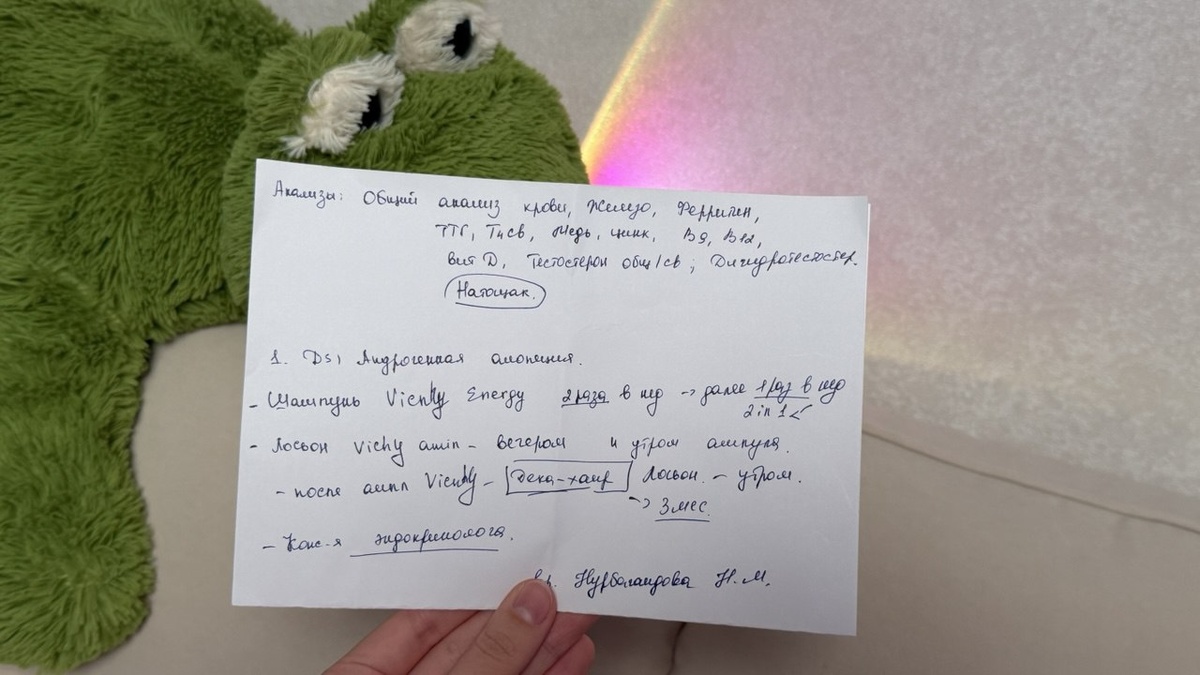 Анализы: Общий анализ крови, Железо, Ферритин,
ТТГ, Т4св, Медь, цинк, В9, В12,
вит D, Тестостерон общ/св; Дигидротестостер.
Натощак.
1. Ds: Андрогенная алопеция.
- Шампунь Vichy Energy 2 раза в нед → далее 1 раз в нед
2 in 1
- Лосьон Vichy амп - вечером и утром ампула.
- после ампл Vichy - Дека-хаир Лосьон - утром.
→ 3 мес.
- Конс-я эндокринолога.
вр. Н.М.